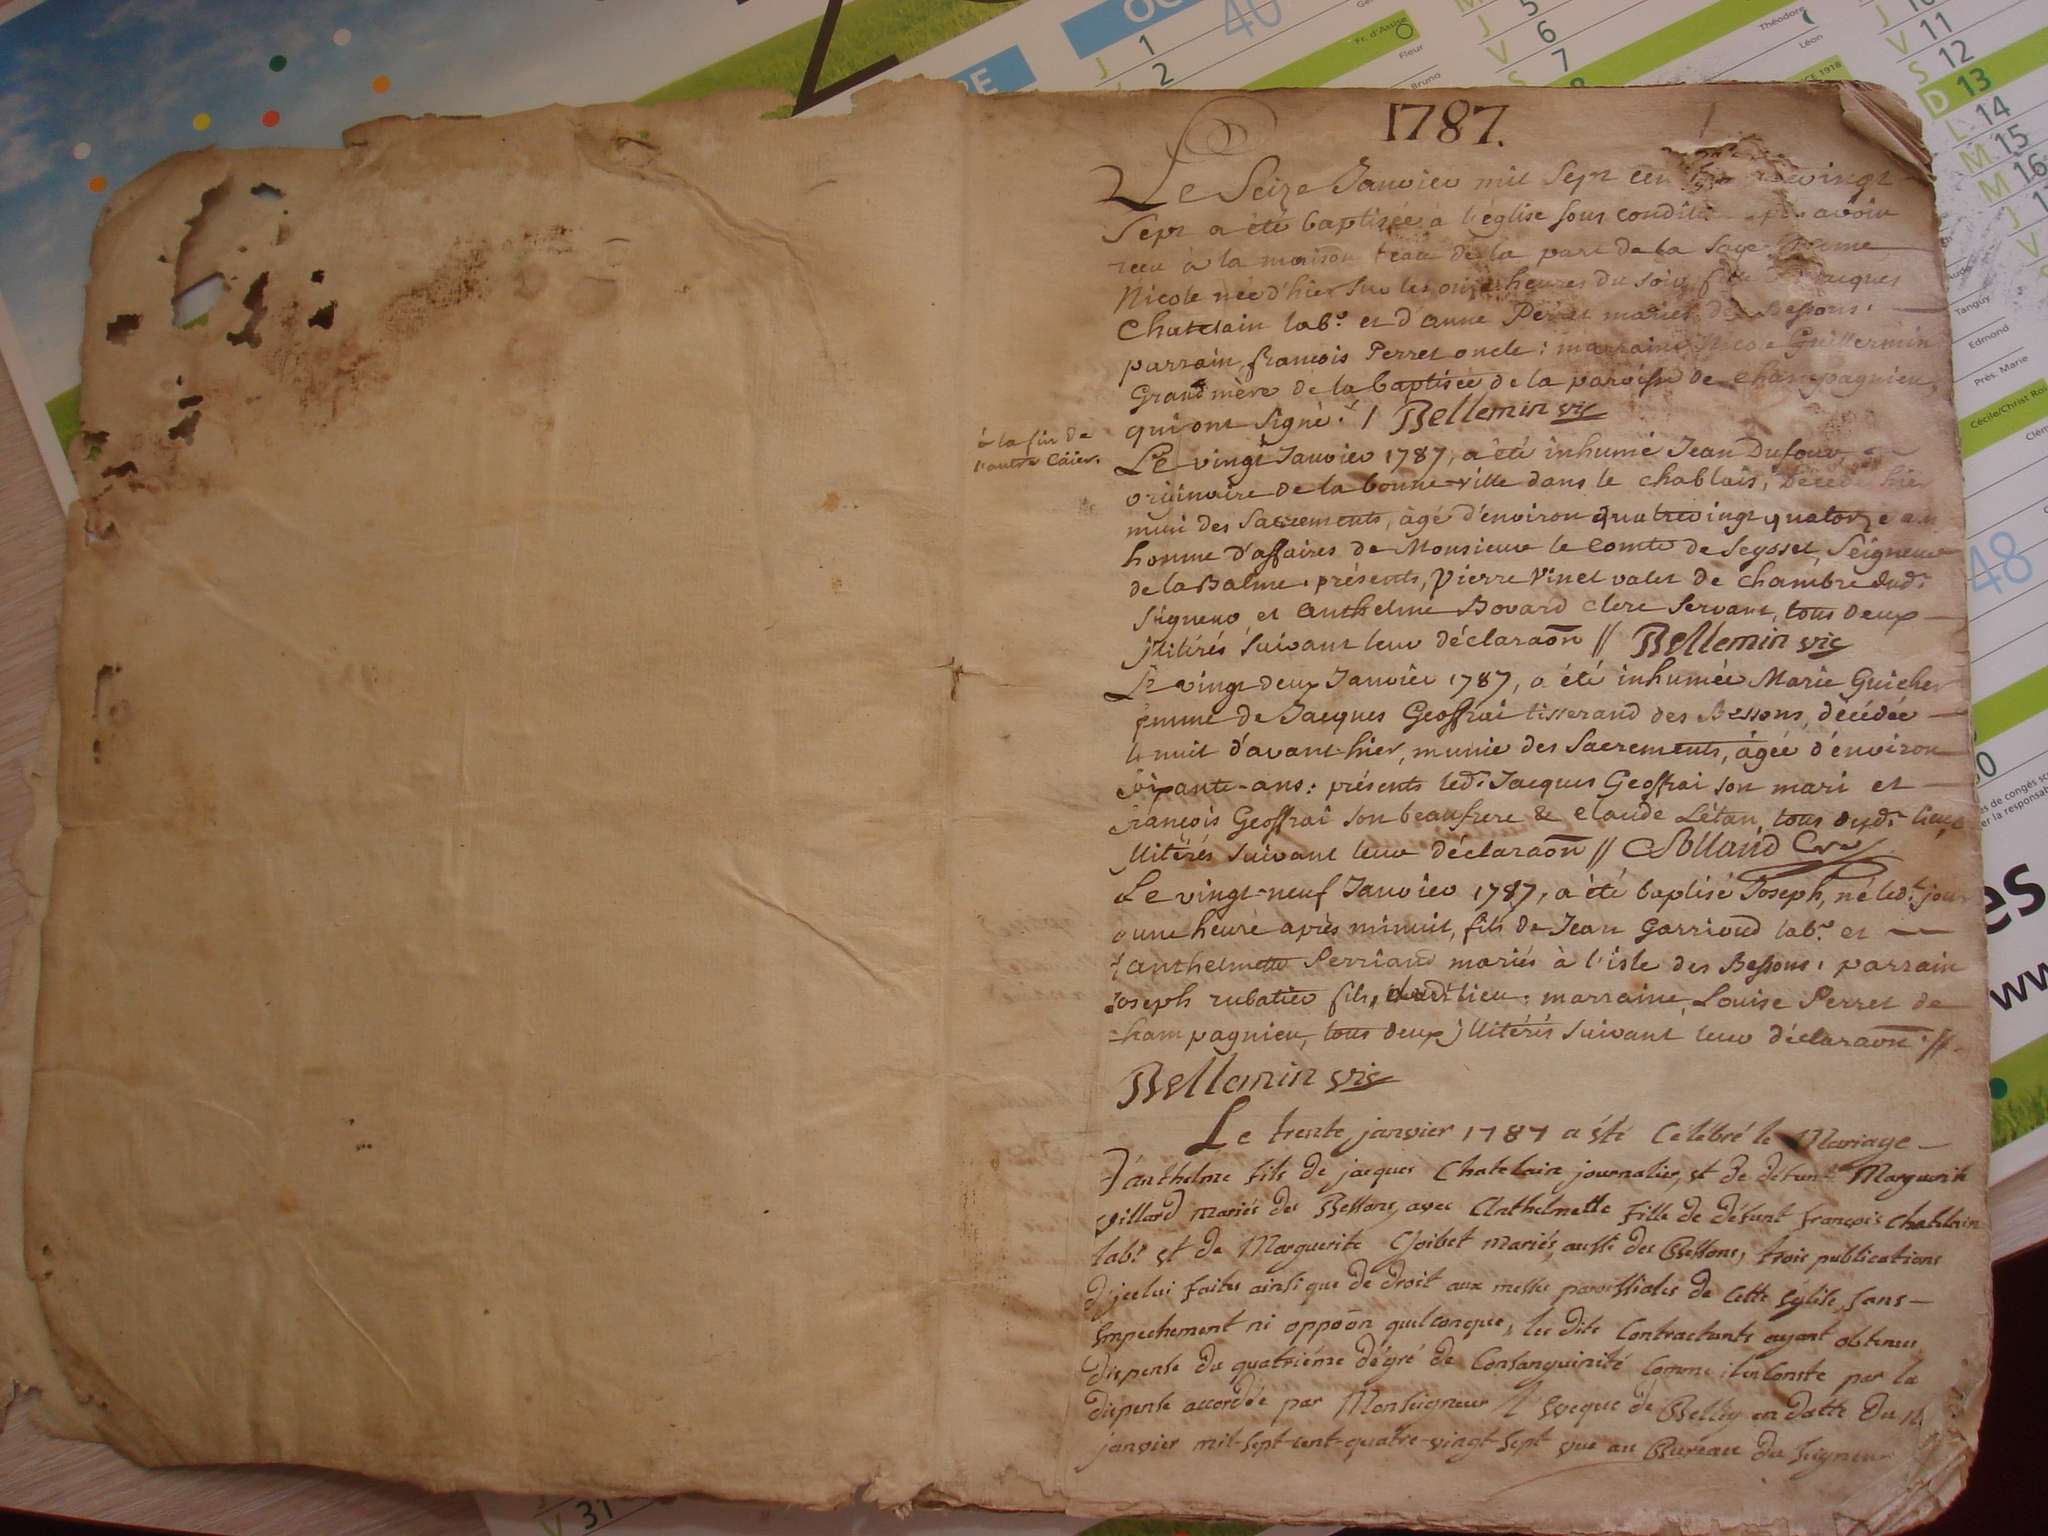 1787.
Le Seize Janvier mil Sept cen vingt
Sept a été baptisée à l'église sous condition après avoir
reçu à la maison l'eau de la part de la Sage femme
Nicole née d'hier sur les onze heures du soir, fille de Jacques
Chatelain lab.r et d'anne Perret mariés des Bessons.
parrain, françois Perret oncle: marraine Nicole Guillermin
Grand mère de la baptisée de la paroisse de champagnieu,
qui ont signé. / Bellemin vic
à la fin de
l'autre Caïer.
Le vingt Janvier 1787, a été inhumé Jean Dufour
originaire de la bonne-ville dans le chablais, décédé hier
muni des Sacrements, âgé d'environ quatrevingt quatorze ans
homme d'affaires de Monsieur le Comte de Seyssel, Seigneur
de la Balme. présents, Pierre Vinet valet de chambre dud.t
Seigneur et anthelme Bovard clerc servant, tous deux
jllitérés suivant leur déclaraõn // Bellemin vic
Le vingt deux Janvier 1787, a été inhumée Marie Guicher
femme de Jacques Geoffrai tisserand des Bessons, décédée
la nuit d'avant-hier, munie des Sacrements, âgée d'environ
soixante-ans: présents led.t Jacques Geoffrai son mari et
françois Geoffrai son beaufrere & claude Létan, tous dud.t lieu,
jllitérés suivant leur déclaraõn //
Le vingt-neuf Janvier 1787, a été baptisé Joseph, né led.t jour
à une heure après minuit, fils de Jean Garrioud lab.r et
d'anthelmette Perriand mariés à l'isle des Bessons. parrain
Joseph rubatier fils, dud.t lieu: marraine, Louise Perret de
champagnieu, tous deux jllitérés suivant leur déclaraõn. //.
Bellemin vic
Le trente janvier 1787 a été Celébré le Mariage
D'anthelme fils de jacques Chatelain journalier, et de défunte Marguerite
villard mariés des Bessons, avec Anthelmette fille de défunt françois chatelain
lab.r et de Marguerite Goibet mariés, aussi des Bessons, trois publications
d'jcelui faites ainsi que de droit aux messes paroissiales de cette église, sans
Empechement ni oppoõn quelconque, les dits Contractants ayant obtenus
dispense du quatrième dégré de Consanguinité comme il en conste par la
dispense accordée par Monseigneur l'Eveque de Belley en datte du
janvier mil-sept-cent-quatre-vingt-sept vue au Bureau du Seigneur